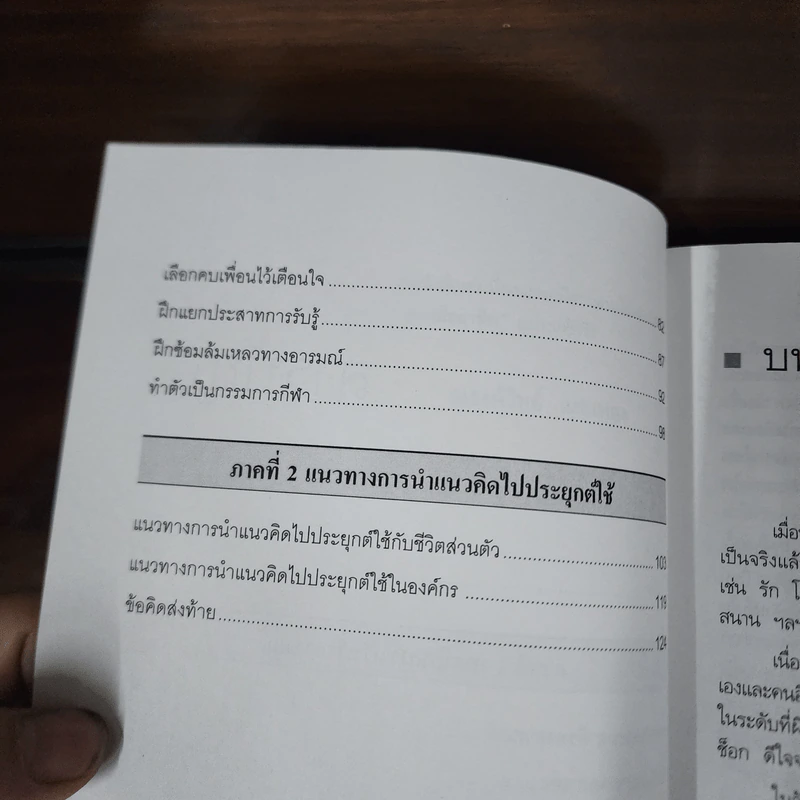 เลือกคบเพื่อนไว้เตือนใจ ........ 82
ฝึกแยกประสาทการรับรู้ ........ 87
ฝึกซ้อมล้มเหลวทางอารมณ์ ........ 92
ทำตัวเป็นกรรมการกีฬา ........ 98
ภาคที่ 2 แนวทางการนำแนวคิดไปประยุกต์ใช้
แนวทางการนำแนวคิดไปประยุกต์ใช้กับชีวิตส่วนตัว ........ 103
แนวทางการนำแนวคิดไปประยุกต์ใช้ในองค์กร ........ 119
ข้อคิดส่งท้าย ........ 124
เป็นจริงแล้
เช่น รัก
สนาน ฯลฯ
ในระดับที่
ช็อก